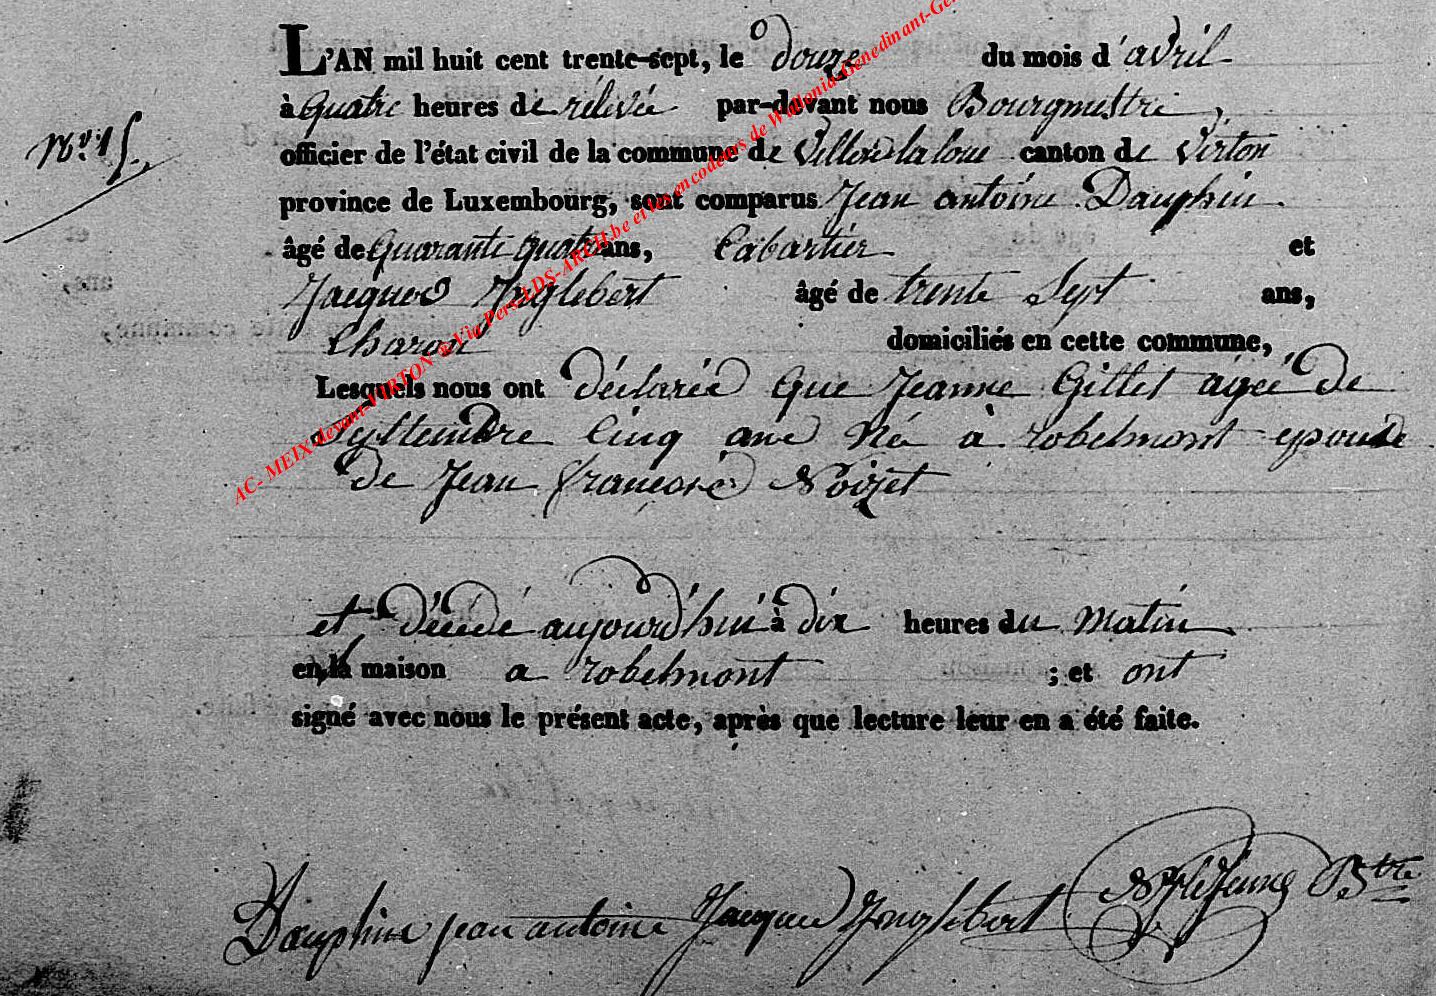 L'AN mil huit cent trente-sept, le douze du mois d'avril
à quatre heures de rélévée par-devant nous Bourgmestre,
N.° 15.
officier de l'état civil de la commune de Villers la loue canton de Virton
province de Luxembourg, sont comparus Jean antoine Dauphin
âgé de quarante quatre ans, Cabartier et
Jacques Inglebert âgé de trente Sept ans,
Charon domiciliés en cette commune,
Lesquels nous ont déclarée que Jeanne Gillet agée de
Cinq ans Née à robelmont epouse
de Jean françois Noizet
et décédé aujourd'hui à dix heures du matin
en la maison a robelmont ; et ont
signé avec nous le présent acte, après que lecture leur en a été faite.
Dauphin jean antoine Jacques Inglebert LeJeune Bstre
AC- MEIX-devant-VIRTON @ Via Pers LDS-ARCH.be et les encodeurs de Wallonia-Genedinant-Gen